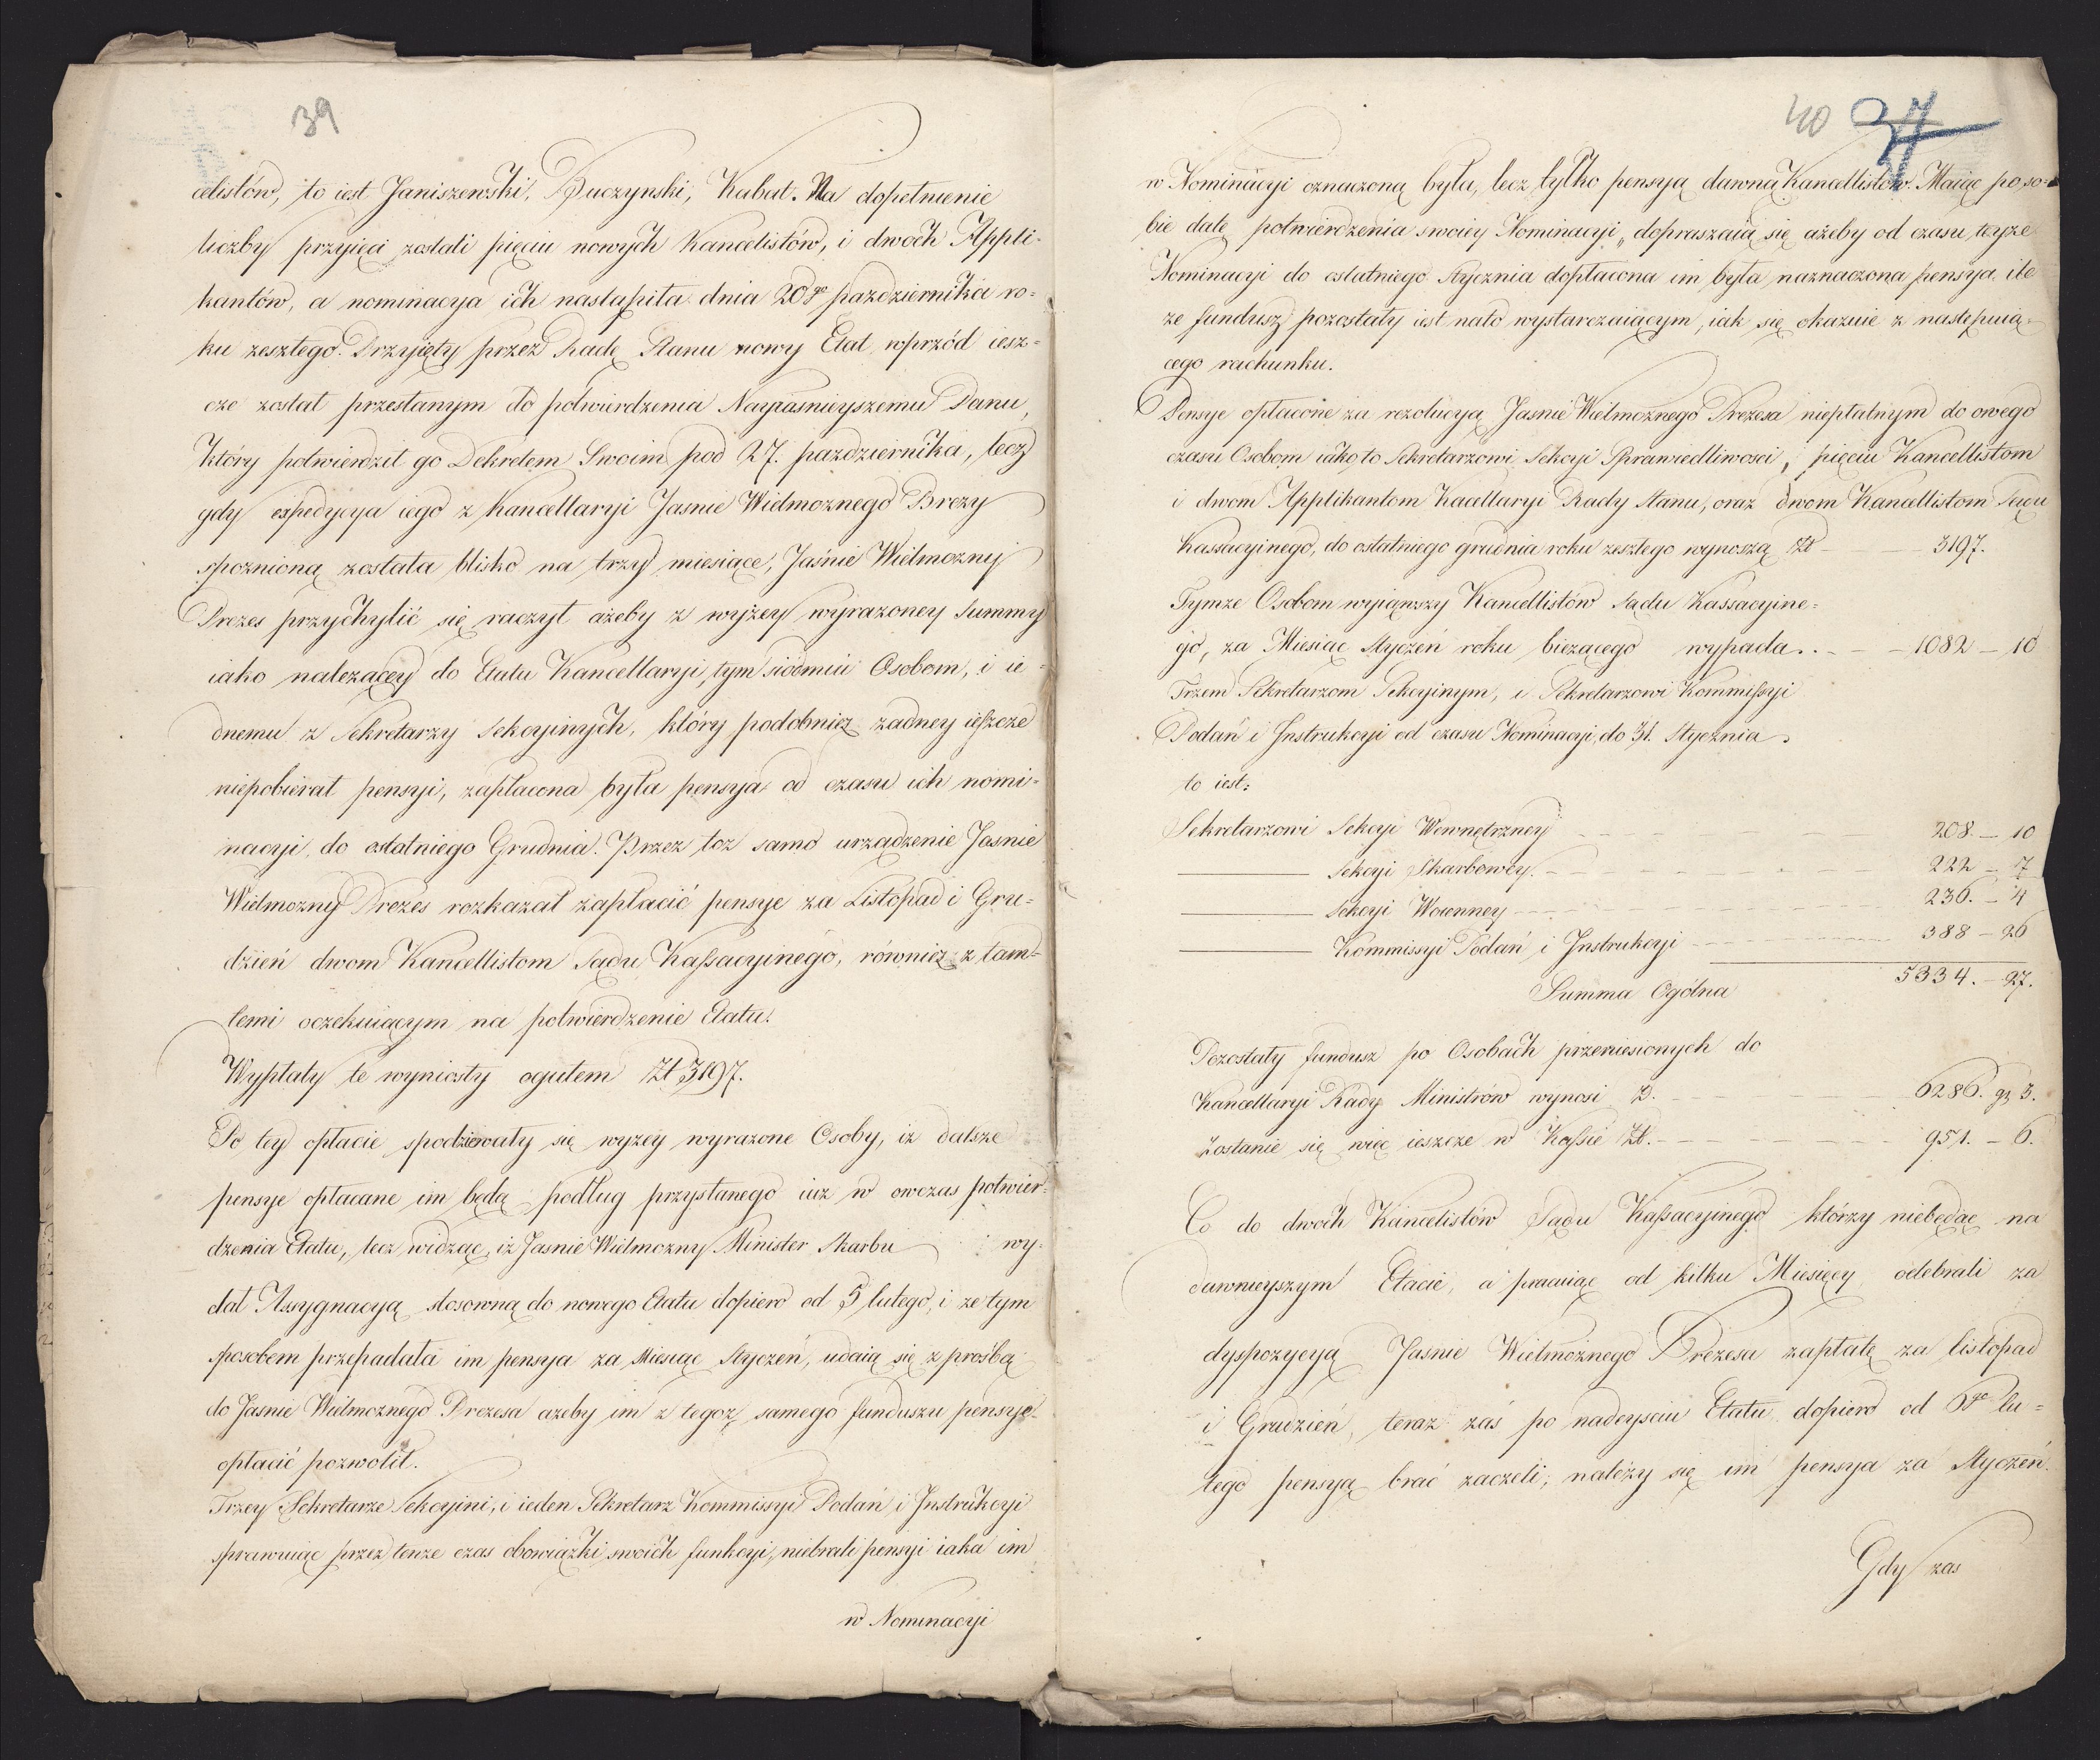 39
celistów, to iest Janiszewski, Buczynski, Kubat. Na dopełnienie
liczby przyięci zostali pięciu nowych Kancelistów, i dwóch Appli-
kantów, a nominacya ich nastąpiła dnia 20go pazdziernika ro=
ku zeszłego. Przyięty przez Radę Stanu nowy Etat wprzód iesz=
cze został przesłanym do potwierdzenia Nayiaśnieyszemu Panu,
który potwierdził go Dekretem Swoim pod 27. pazdziernika, lecz
gdy expedycya iego z Kancellaryi Jasnie Wielmoznego Brezy
spoznioną została blisko na trzy miesiące, Jaśnie Wielmozny
Prezes przychylić się raczył ażeby z wyżey wyrazoney Summy
iako nalezącey do Etatu Kancellaryi, tym siódmiu Osobom, i ie-
dnemu z Sekretarzy Sekcyinych, który podobniez zadney ieszcze
niepobierał pensyi, zapłacona była pensya od czasu ich nomi=
nacyi do ostatniego Grudnia. Przez toz samo urządzenie Jasnie
Wielmozny Prezes rozkazał zapłacić pensye za Listopad i Gru=
dzień dwom Kancellistom Sądu Kassacyinego, równiez z tam=
temi oczekuiącym na potwierdzenie Etatu.
Wypłaty te wyniosły ogułem Zł 3197.
Po tey opłacie spodziewały się wyzey wyrazone Osoby, iz dalsze
pensye opłacane im będą podług przysłanego iuz w owczas potwier=
dzenia Etatu, lecz widząc, iz Jasnie Wielmozny Minister Skarbu wy-
dał Assygnacyą stosowną do nowego Etatu dopiero od 5 lutego, i ze tym
sposobem przepadała im pensya za Miesiąc Styczeń, udaią się z prośbą
do Jasnie Wielmoznego Prezesa azeby im z tegoz samego funduszu pensye
opłacić pozwolił.
Trzey Sekretarze Sekcyini, i ieden Sekretarz Kommissyi Podań i Instrukcyi
sprawuiąc przez tenze czas obowiązki swoich funkcyi, niebrali pensyi iaka im
w Nominacyi
40 37
w Nominacyi oznaczoną była, lecz tylko pensyą dawną Kancellistów. Maiąc po so-
bie datę potwierdzenia swoiey Nominacyi, dopraszaią się ażeby od czasu teyze
Nominacyi do ostatniego Stycznia dopłacona im była naznaczona pensya ile
ze fundusz pozostały iest nato wystarczaiącym, iak się okazuie z następuią-
cego rachunku.
Pensye opłacone za rezolucyą Jasnie Wielmoznego Prezesa niepłatnym do owego
czasu Osobom iako to Sekretarzowi Sekcyi Sprawiedliwosci, pięciu Kancellistom
i dwom Applikantom Kacellaryi Rady Stanu, oraz dwom Kancellistom Sądu
Kassacyinego, do ostatniego grudnia roku zeszłego wynoszą Zł — 3197.
Tymze Osobom wyiąwszy Kancellistów Sądu Kassacyine=
go, za Miesiąc Styczeń roku biezącego wypada. . - - 1082 - 10
Trzem Sekretarzom Sekcyinym, i Sekretarzowi Kommissyi
Podań i Instrukcyi od czasu Nominacyi do 31. Stycznia.
to iest:
Sekretarzowi Sekcyi Wewnętrzney - - - 208. - 10
——— Sekcyi Skarbowey. - - - 222 - 7
——— Sekcyi Woienney - - - 236. - 4
——— Kommissyi Podań i Instrukcyi - - - 388 - 26
Summa Ogólna 5334. - 27.
Pozostały fundusz po Osobach przeniesionych do
Kancellaryi Rady Ministrów wynosi Z. - - - 6286. gr 3.
Zostanie się więc ieszcze w Kassie Zł. - - - 951. - 6.
Co do dwóch Kancelistów Sądu Kassacyinego którzy niebędąc na
dawnieyszym Etacie, a pracuiąc od kilku Miesięcy odebrali za
dyspozycyą Jasnie Wielmożnego Prezesa zapłatę za listopad
i Grudzień, teraz zaś po nadeysciu Etatu dopiero od 6go lu=
tego pensyą brać zaczeli, należy się im pensya za Styczeń.
Gdy zas